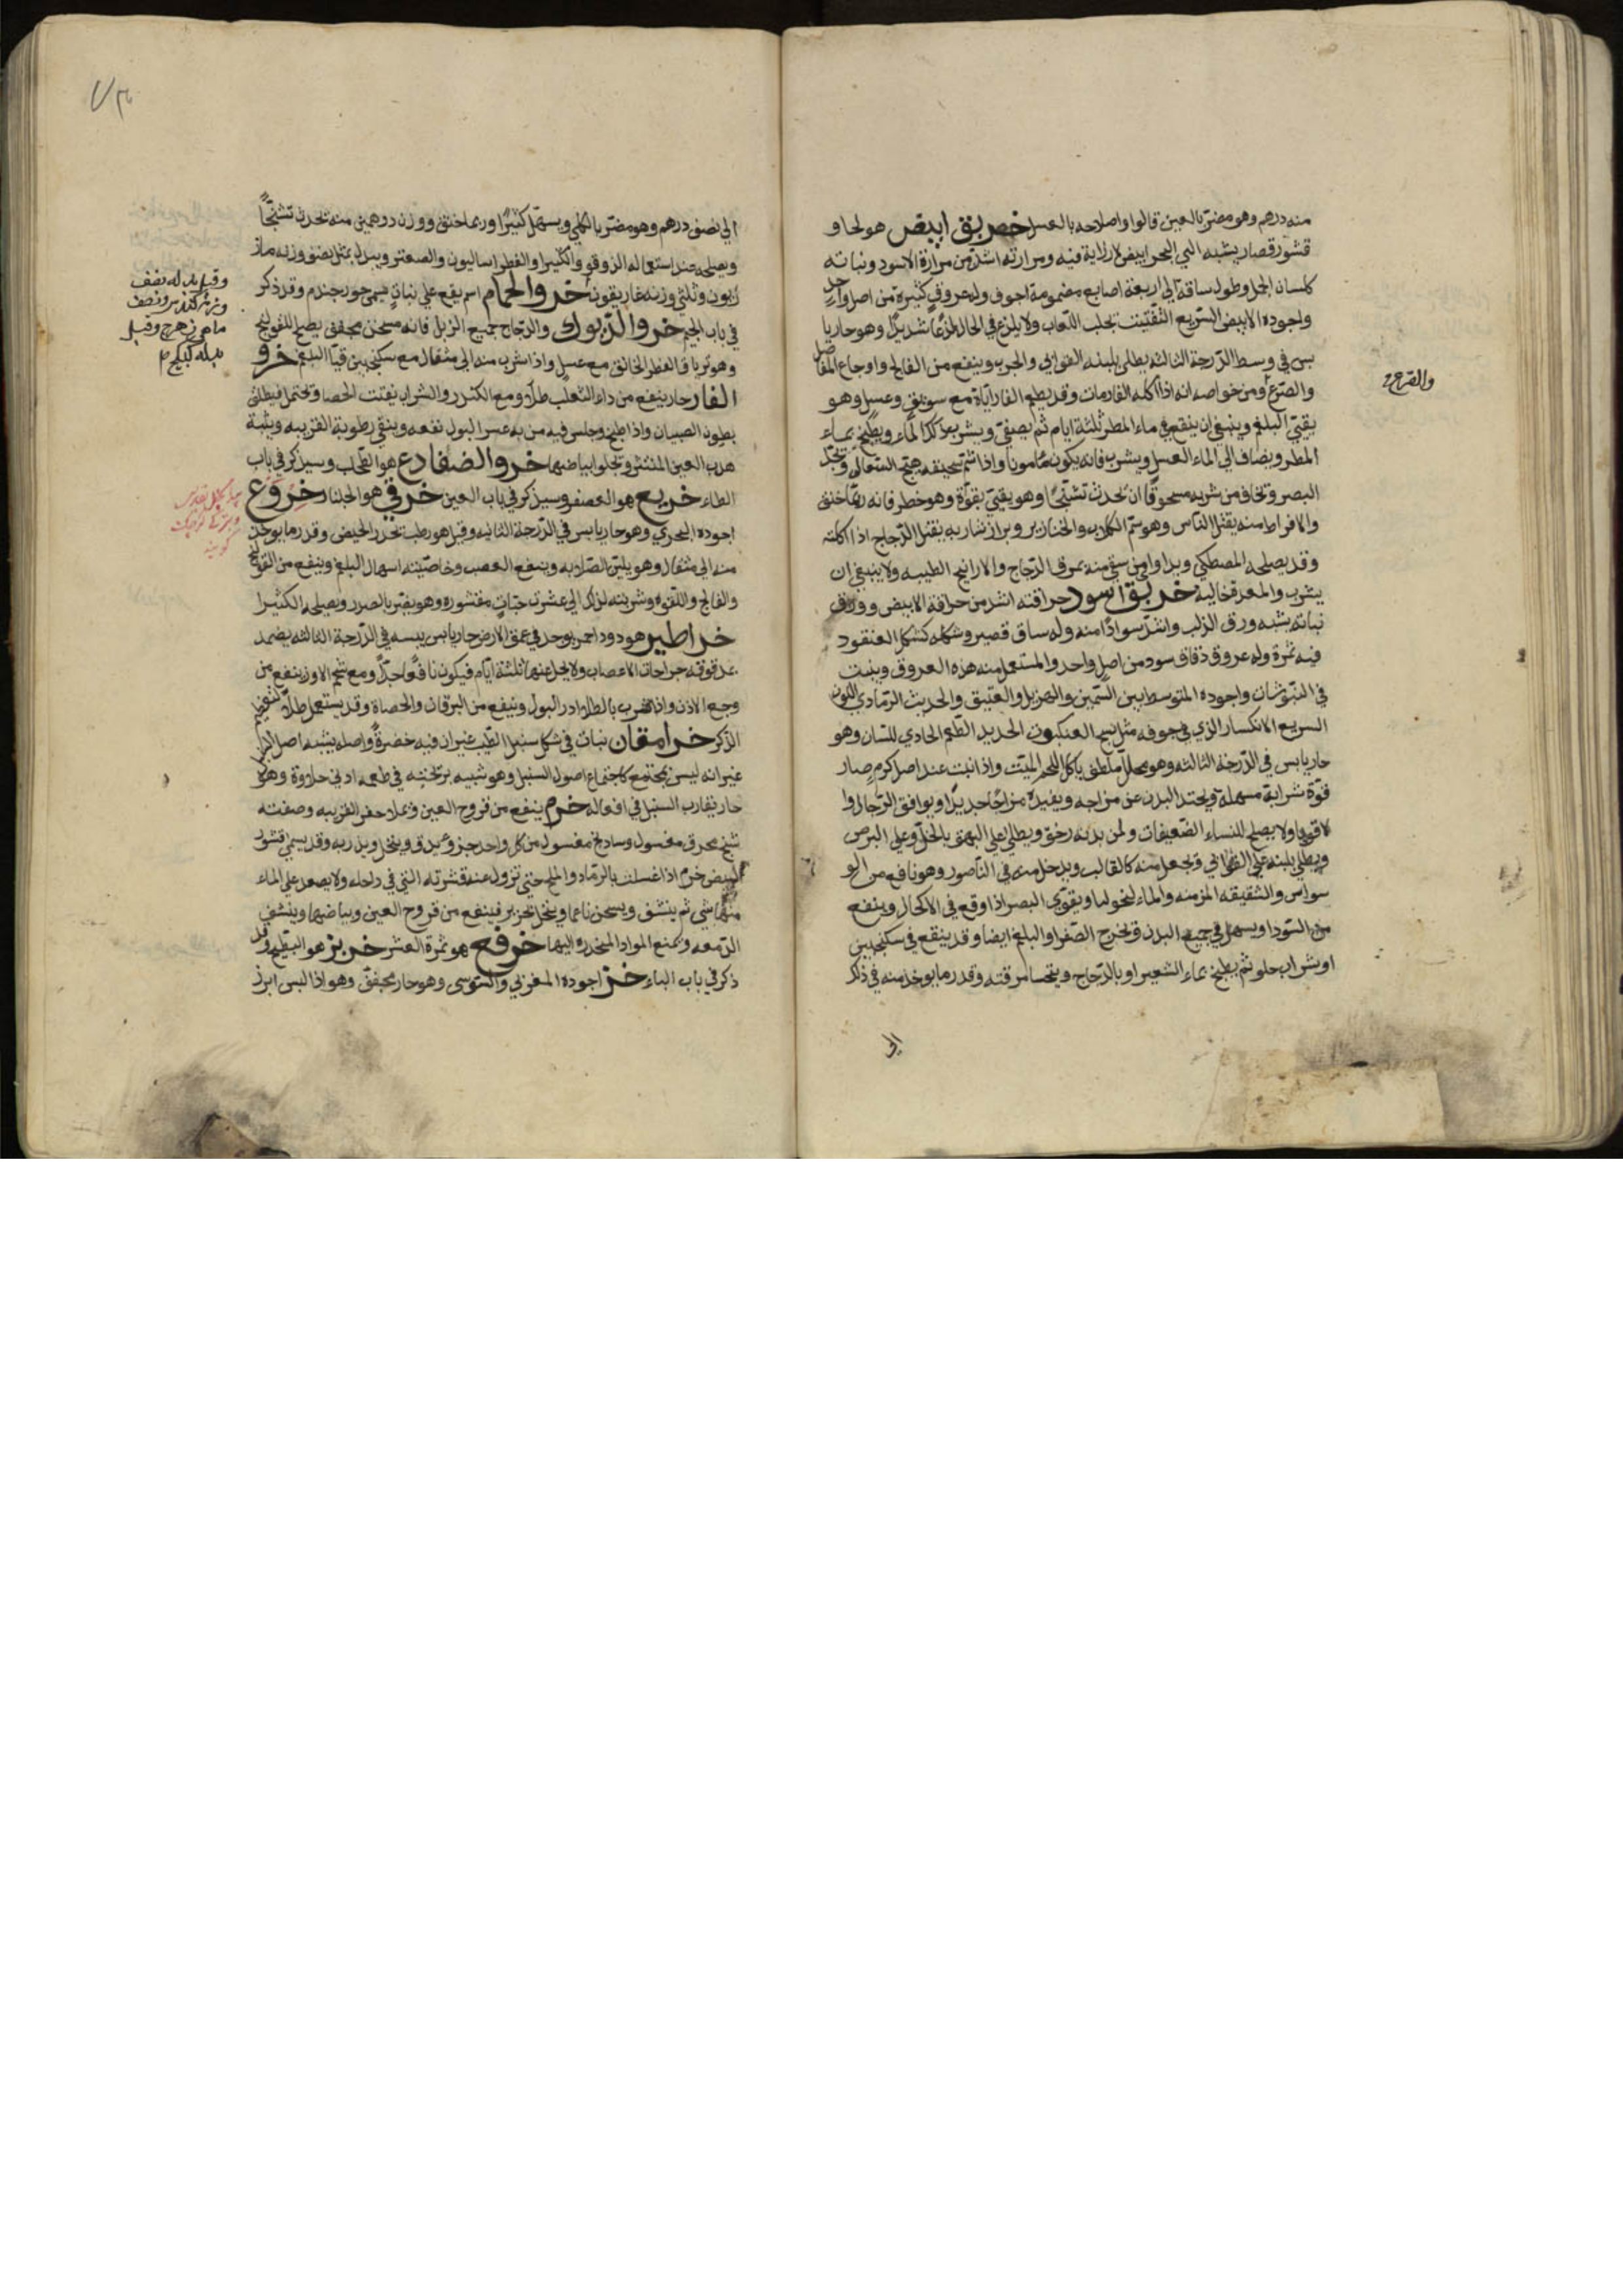 منه درهم وهو مضر بالعين قالوا واصلاحه بالعسل خربق ابيض هو لحاو
قشور قصار يشبه التي البحر ابيض لا رزاية فيه ومرارته اشد من مرارة الاسود ونباته
كلسان الحمل وطول ساقه الى اربعة اصابع مضمومة اجوف وله عروق كثيرة من اصل واحد
واجوده الابيض السريع التفتيت يجلب اللعاب ولا يلذع في الحال لذعا شديدا وهو حار يا
بس في وسط الدرجة الثالثه يطلى بلبنه القوابي والجرب وينفع من الفالج واوجاع المفاصل
والصرع ومن خواصه انه اذا اكله الفار مات وقد يطعم الفار اياه مع سويق وعسل وهو
يقيئ البلغم وينبغي ان ينقع في ماء المطر ثلثة ايام ثم يصفى ويشرب بعد ذلك الماء ويطبخ بماء
المطر ويضاف الى الماء العسل ويشرب فانه يكون مامونا واذا شم سحيقه هيج السعال ويحد
البصر ويخاف من شربه مسحوقا ان يحدث تشنجا وهو يقيئ بقوة وهو خطر فانه ربما خنق
والافراط منه يقتل الناس وهو سم الكلاب والخنازير وبراز شاربه يقتل الدجاج اذا اكلته
وقد يصلحه المصطكي ويداوى من سقي منه بمرق الدجاج والارانيح الطيبه ولا ينبغي ان
يشرب والمعدة خالية خربق اسود حرافته اشد من حرافة الابيض وورق
نباته يشبه ورق الدلب واشد سوادا منه وله ساق قصير وشكله كشكل العنقود
فيه ثمرة وله عروق دقاق سود من اصل واحد والمستعمل منه هذه العروق وينبت
في النتوشان واجوده المتوسط بين السمين والهزيل والعتيق والحديث الرمادي اللون
السريع الانكسار الذي في جوفه مثل نسج العنكبوت الحديد الطعم الحادي للسان وهو
حار يابس في الدرجة الثالثه وهو محلل ملطف ياكل اللحم الميت واذا نبت عند اصل كرم صار
قوة شرابه مسهلة ويحيد البدن عن مزاجه ويفيده مزاجا جديدا ويوافق الرجال وا
لاقوياء ولا يصلح للنساء الضعيفات ولمن بدنه رخو ويطلى على البهق بالخل وعلى البرص
ويطلى بلبنه على القوابي ويجعل منه كالقالب ويدخل منه في الناصور وهو نافع من الو
سواس والشقيقه المزمنه والماء ليخوليا ويقوي البصر اذا وقع في الاكحال وينفع
من السودا ويسهل في جميع البدن ويخرج الصفرا والبلغم ايضا وقد ينقع في سكنجبين
او بشراب حلو ثم يطبخ بماء الشعير او بالدجاج ويتحسا مرقته وقدر ما يوخذ منه في ذلك
الى
والقرع
الى نصف درهم وهو مضر بالكلى ويسهل كثيرا وربما خنق ووزن درهمين منه يحدث تشنجا
ويصلحه عند استعماله الزوفو والكثيرا والفطر اساليون والصعتر وبدله بمثل نصف وزنه ماز
ريون وثلثي وزنه غاريقون خرو الحمام اسم يقع على نبات يسمى جوز جندم وقد ذكر
في باب الجيم خرو الديوك والدجاج جميع الزبل فانه مسخن مجفف يصلح للقولنج
وهو ترياق الفطر الخانق مع عسل واذا شرب منه الى مثقال مع سكنجبين قيأ البلغم خرو
الفار حار ينفع من داء الثعلب طلاء ومع الكندر والشراب يفتت الحصا ويحتمل فيطلق
بطون الصبيان واذا طبخ وجلس فيه من به عسر البول نفعه وينقي رطوبة القرنيه وينبت
هدب العين المنتثر ويجلوا بياضها خرو الضفادع هو الطحلب وسيذكر في باب
الطاء خريع هو العصفر وسيذكر في باب العين خرفي هو الجلنار خروع
اجوده البحري وهو حار يابس في الدرجة الثانيه وقيل هو رطب يحدر الحيض وقدر ما يوخذ
منه الى مثقال وهو يلين الصلابه وينفع العصب وخاصيته اسهال البلغم وينفع من القولنج
والفالج واللقوه وشربته لذلك الى عشرين حبات مقشوره وهو يضر بالصدر ويصلحه الكثيرا
خراطين هو دود احمر يوجد في عمق الارض حار يابس يبسه في الدرجة الثالثه يضمد
بمدقوقه جراحات الاعصاب ولا يحل عنها ثلثة ايام فيكون نافعا جدا ومع شحم الاوز ينفع من
وجع الاذن واذا شرب بالطلاء ادر البول وينفع من اليرقان والحصاة وقد يستعمل طلاء لتعظيم
الذكر خرامقان نبات في شكل سنبل الطيب غير ان فيه خضرة واصله يشبه اصل
غير انه ليس بمجتمع كاجتماع اصول السنبل وهو شبيه برتخته في طعمه ادنى حلاوة وهو
حار يقارب السنبل في افعاله خرم ينفع من قروح العين ويملا حفر القرنيه وصفته
شيح محرق مغسول وسادنج مغسول من كل واحد جزو يدق وينخل ويذر به وقد يسمى قشور
البيض خرم اذا غسلت بالرماد والملح حتى تزول عنه قشرته التي في داخله ولا يصعد على الماء
منها شي ثم ينشف ويسحق ناعما وينخل بحرير فينفع من قروح العين وبياضها وينشف
الدمعه ويمنع المواد المنحدره اليها خرفع هو ثمرة العشر خربز هو البطيخ وقد
ذكر في باب الباء خز اجوده المغزلي والسوسى وهو حار مجفف وهو اذا لبس ابرز
وقيل بدله نصف
وزنه كندس ونصف
ماهى زهرج وقيل
بدله كبيكج م